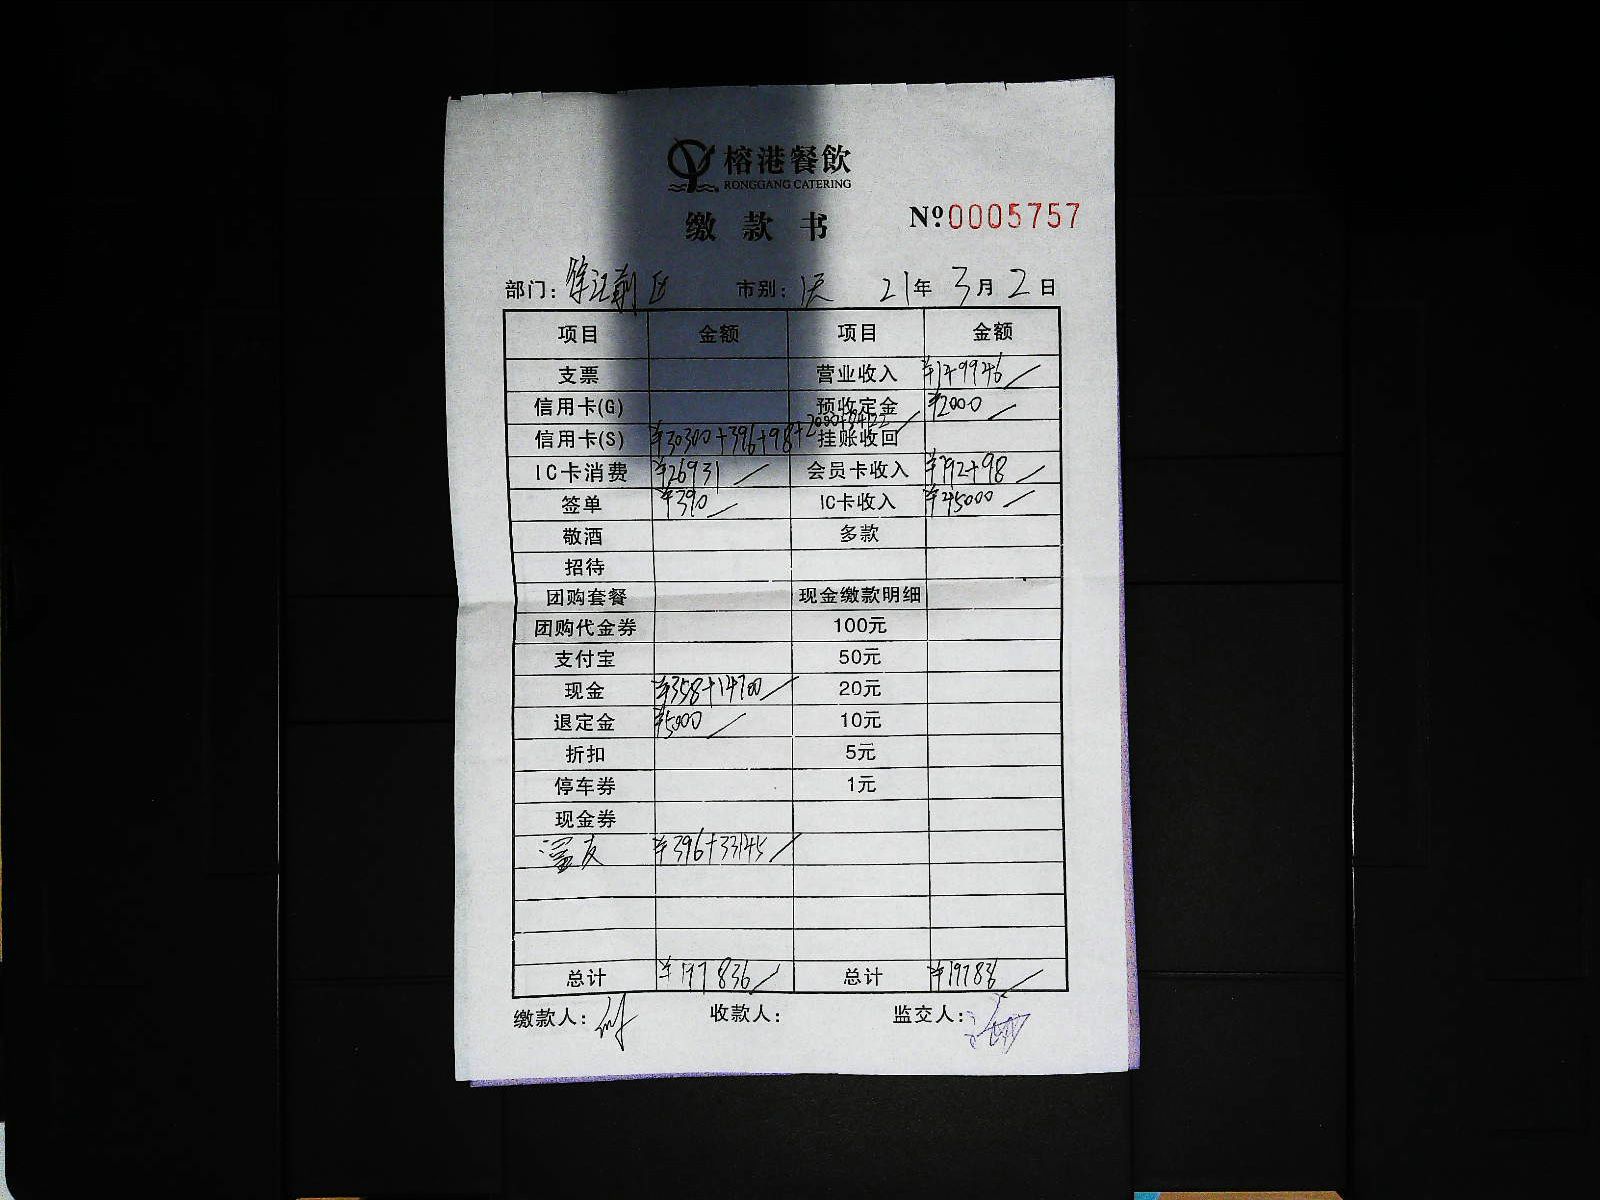 榕港餐飲
RONGGANG CATERING
缴款书
№0005757
部门： 市别： 21年 3月 2日
项目 金额 项目 金额
支票 营业收入 ¥149946
信用卡(G) 预收定金 ¥2000
信用卡(S) ¥30300+396+98+2000+84122 挂账收回
IC卡消费 ¥26931 会员卡收入 ¥792+98
签单 ¥390 IC卡收入 ¥45000
敬酒 多款
招待
团购套餐 现金缴款明细
团购代金券 100元
支付宝 50元
现金 ¥358+14700 20元
退定金 ¥5000 10元
折扣 5元
停车券 1元
现金券
¥396+33145
总计 ¥197836 总计 ¥197836
缴款人： 收款人： 监交人：